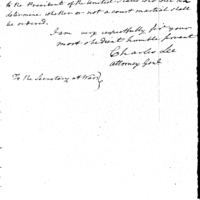 to the President of the United States who will
determine whether or not a court martial shall
be ordered.
I am very respectfully sir your
most obedient humble servant
Charles Lee
Attorney Genl
To the Secretary at War}